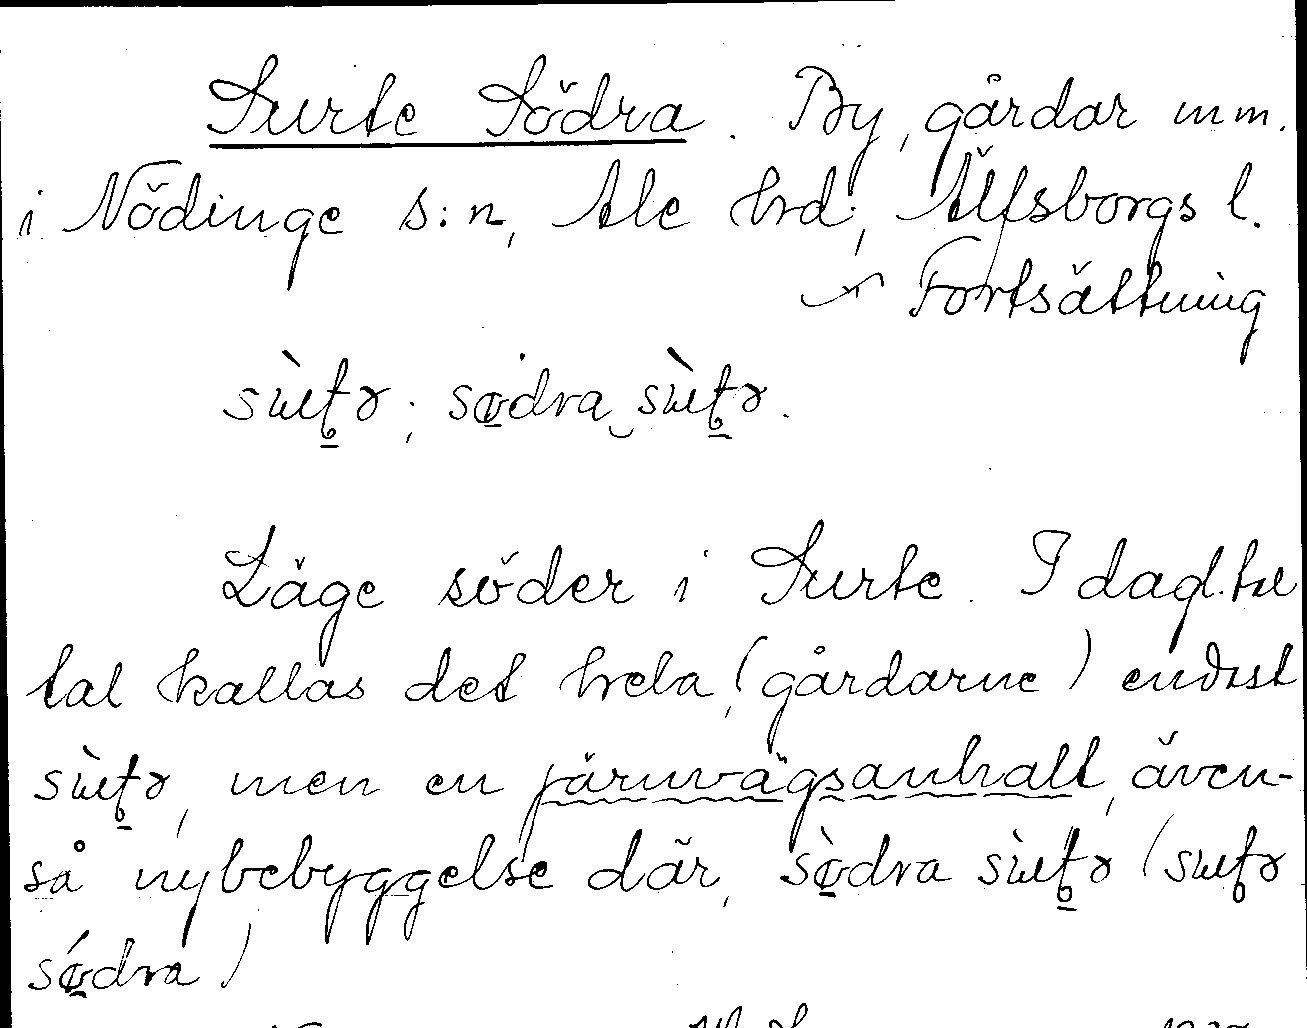 Surte Södra. By, gårdar mm.
i Nödinge s:n, Ale hrd; Älfsborgs l.
Fortsättning
sùʈə; sødra sùʈə.
Läge söder i Surte. I dagl. tal
tal kallas det hela, (gårdarne) endast
sùʈə, men en järnvägsanhalt, även-
så nybebyggelse där, sø̀dra sùʈə (suʈə
sǿdra)